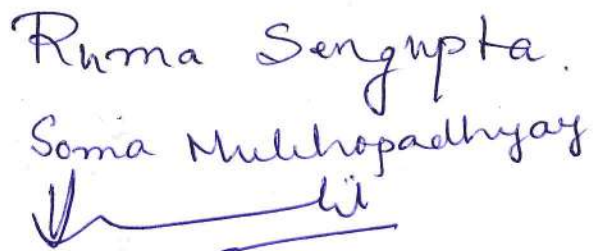 Ruma Sengupta.
Soma Mukhopadhyay